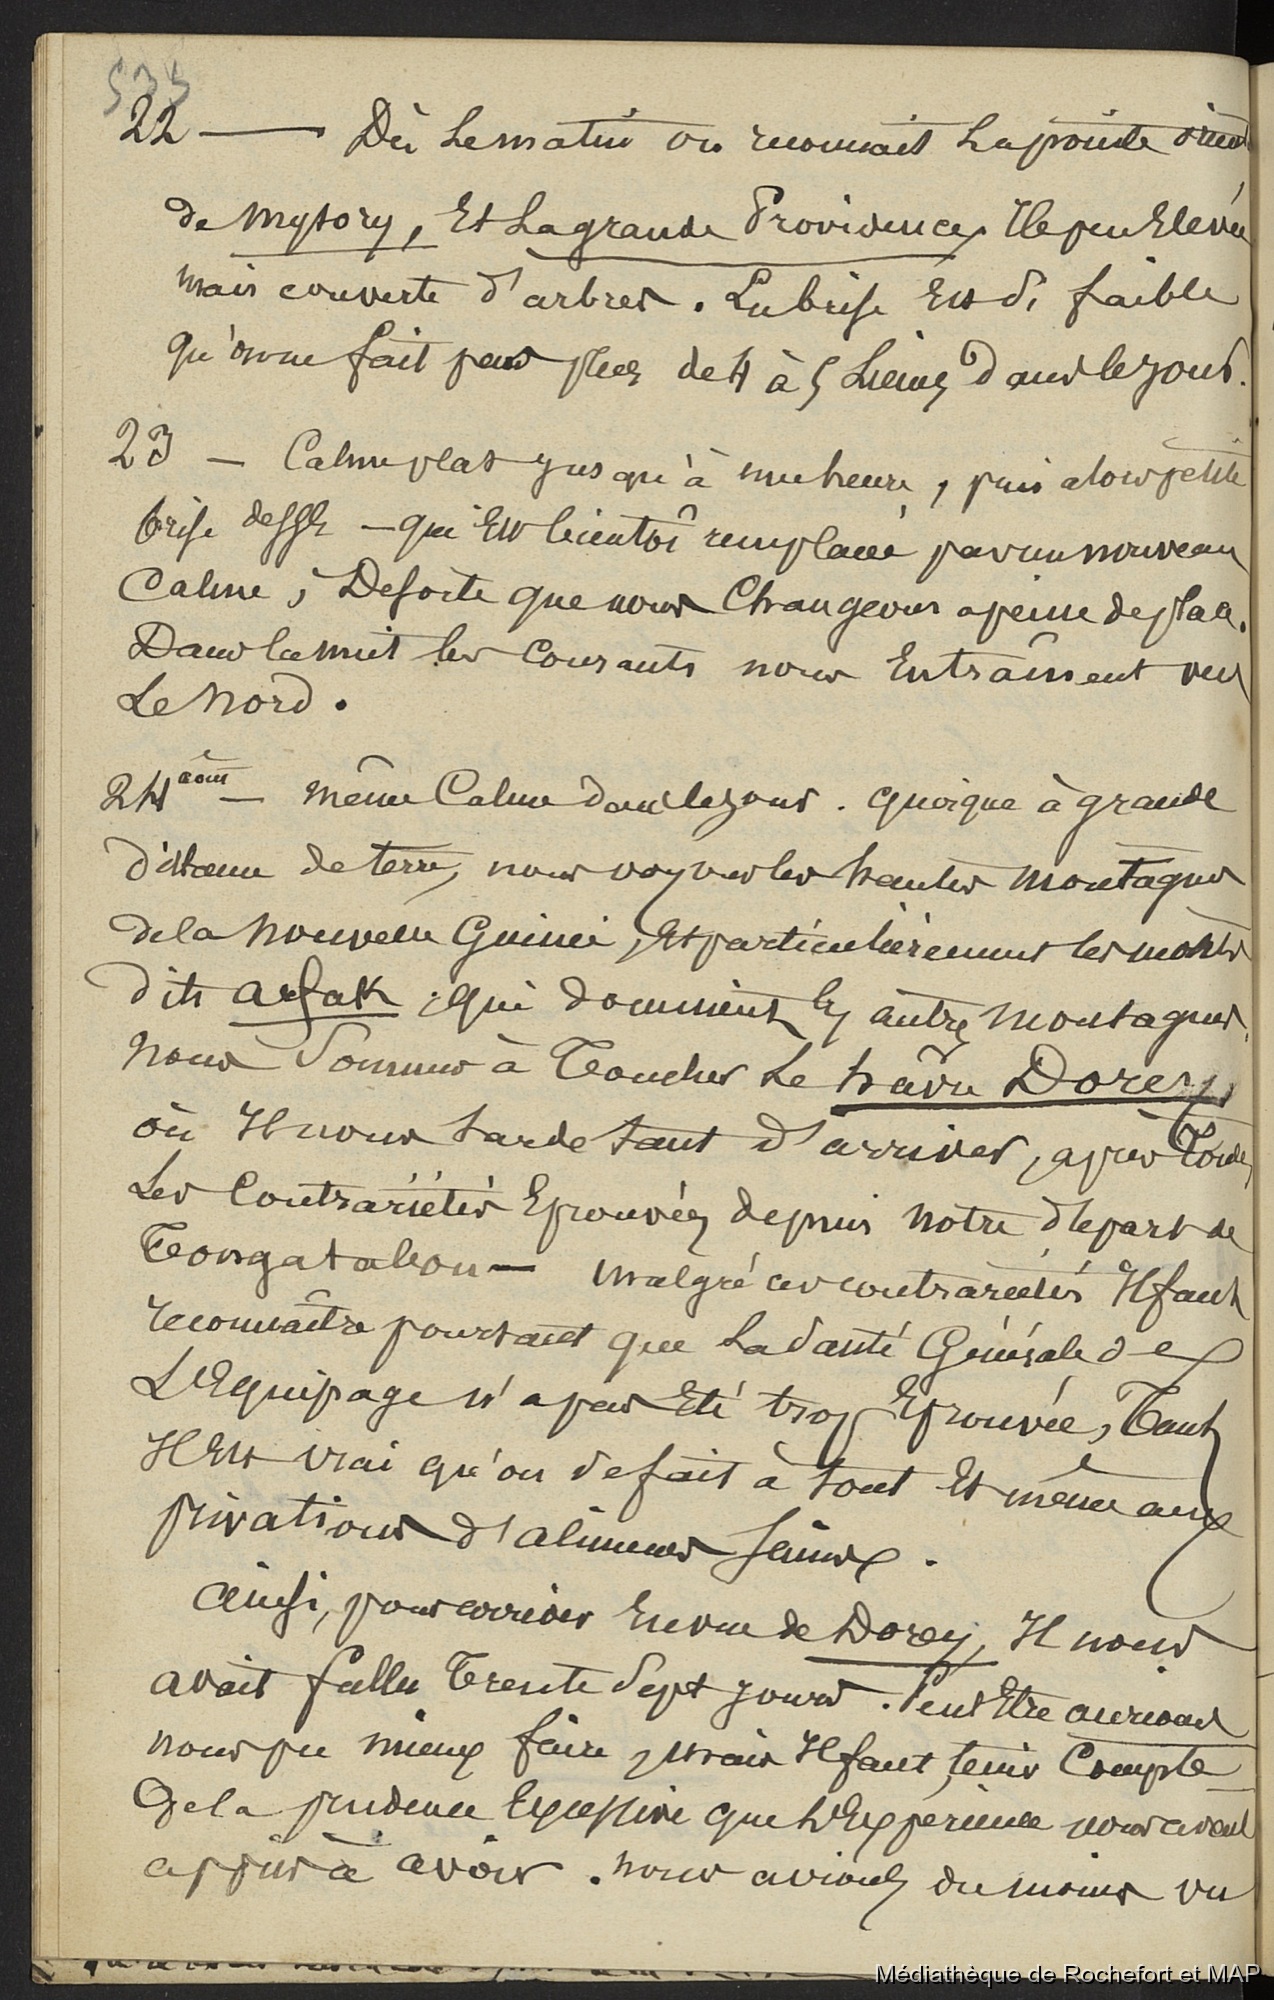 533
22 — Dès le matin on reconnait la pointe orient
de Mysory, Et La grande Providence, Ile peu Elevée
mais couverte d'arbres. La brise Est si faible
qu'on ne fait pas plus de 4 à 5 Lieues dans le jour.
23 — Calme plat jusqu'à une heure, puis alors petite
brise de SSE — qui Est bientôt remplacée par un nouveau
Calme, De sorte que nous Changeons a peine de place.
Dans la nuit les Courants nous Entraînent vers
Le Nord.
24 août — même Calme dans le jour. quoique à grande
distance de terre, nous voyons les hautes Montagnes
de la Nouvelle Guinée, Et particulièrement les monts
dits Arfak, qui dominent les autres Montagnes.
Nous Sommes à Toucher Le hâvre Dorey,
où Il nous tarde tant d'arriver, après Toutes
Les Contrariétés Eprouvées depuis notre départ de
Tongatabou — Malgré ces contrariétés Il faut
reconnaître pourtant que La Santé Générale de
L'Equipage n'a pas Eté trop Eprouvée, Tant
Il Est vrai qu'on se fait à tout Et même aux
privations d'alimens sains.
Ainsi, pour arriver En vue de Dorey, Il nous
avait fallu Trente Sept jours. Peut Etre aurions
nous pu mieux faire, mais Il faut tenir Compte
De la prudence Excessive que L'Expérience nous avait
appris à avoir. Nous avions du moins vu
Médiathèque de Rochefort et MAP